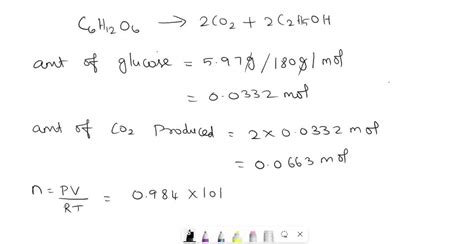 C6H12O6 → 2CO2 + 2C2H5OH
amt of glucose = 5.97g/180g/mol
= 0.0332 mol
amt of CO2 Produced = 2 × 0.0332 mol
= 0.0663 mol
n = PV/RT = 0.984 × 101